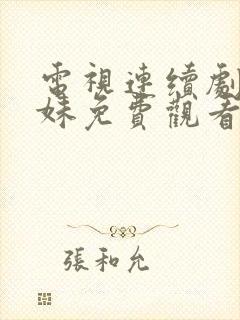 電視連續劇
妹免費觀看
張和允